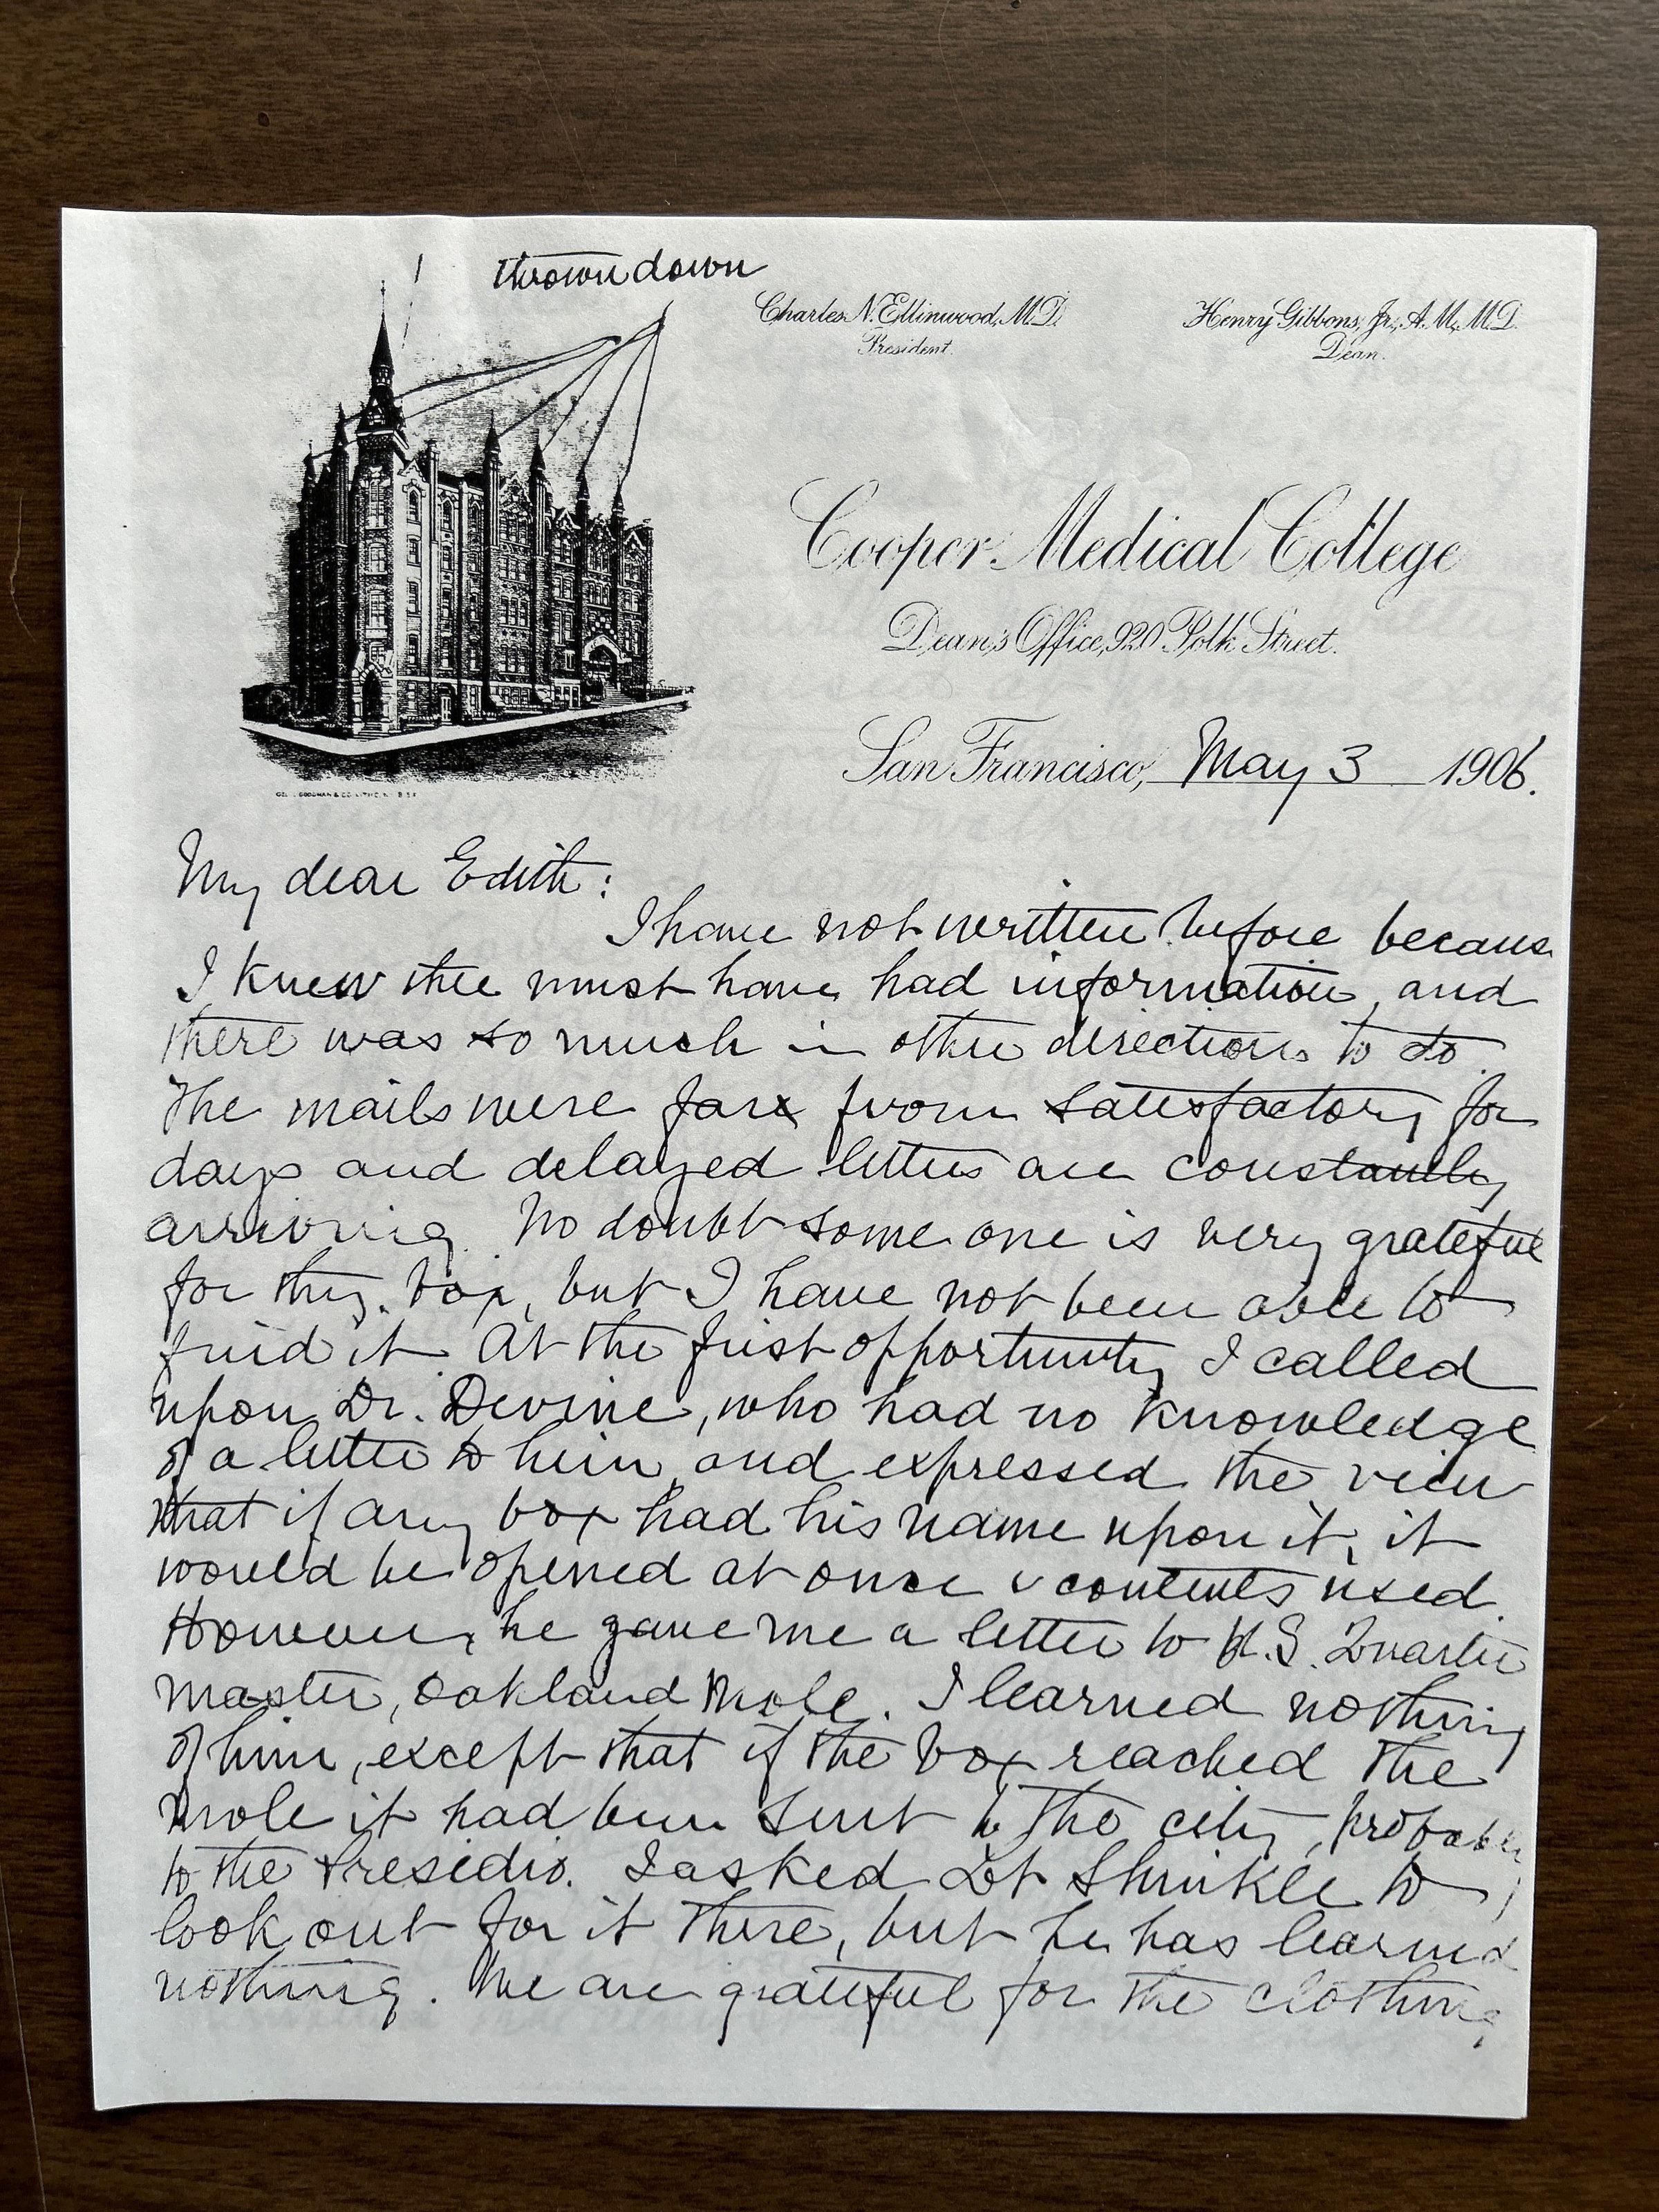 thrown down
Charles N. Ellinwood, M.D.
President.
Henry Gibbons, Jr., A.M., M.D.
Dean.
Cooper Medical College
Dean's Office, 920 Polk Street.
San Francisco, May 3 1906.
My dear Edith:
I have not written before because
I knew thee must have had information, and
there was so much in other directions to do.
The mails were far from satisfactory for
days and delayed letters are constantly
arriving. No doubt some one is very grateful
for thy box, but I have not been able to
find it. At the first opportunity I called
upon Dr. Devine, who had no knowledge
of a letter to him, and expressed the view
that if any box had his name upon it, it
would be opened at once & contents used.
However, he gave me a letter to U.S. Quarter
master, Oakland Mole. I learned nothing
of him, except that if the box reached the
mole it had been sent to the city, probably
to the Presidio. I asked Lt Shinkle to
look out for it there, but he has learned
nothing. We are grateful for the clothing